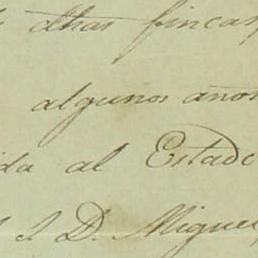 dhas fincas
algunos años
ida al Estado
D. Miguel